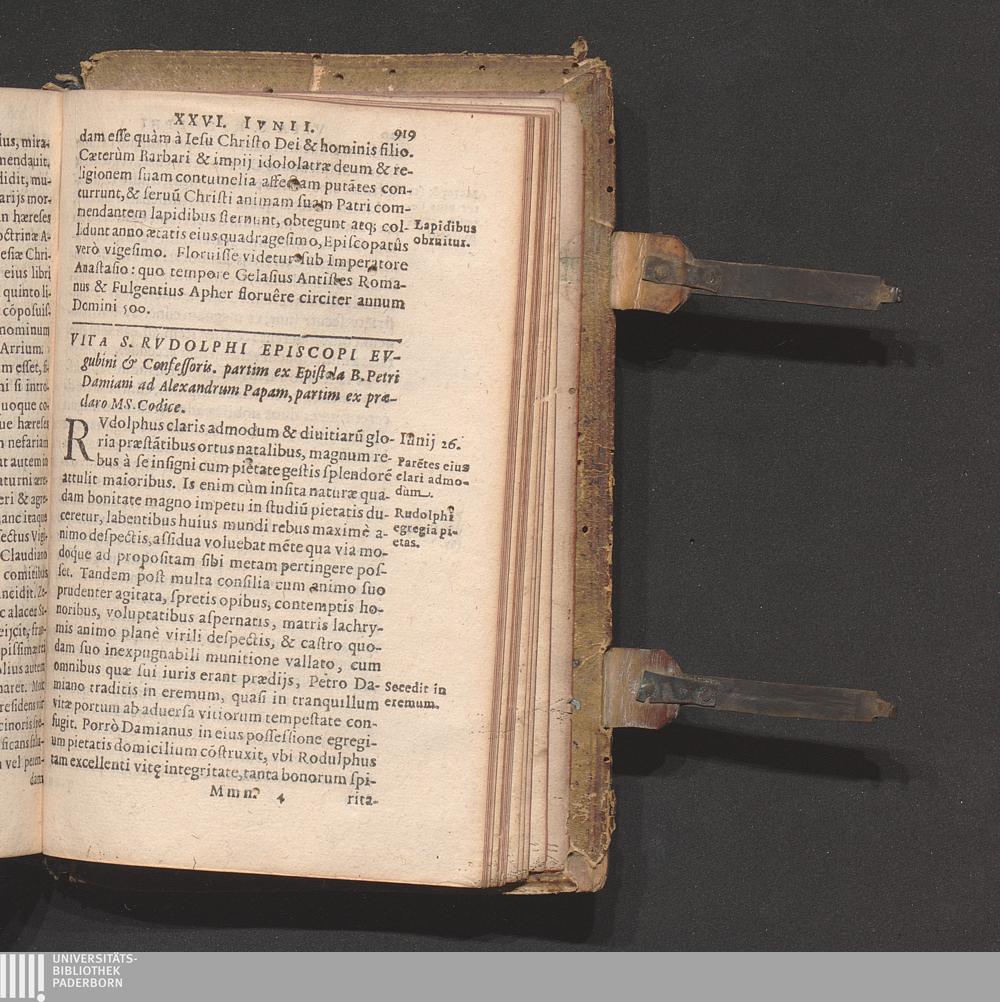 XXVI. IVNII. 919
dam esse quàm à Iesu Christo Dei & hominis filio.
Cæterùm Barbari & impij idololatræ deum & re-
ligionem suam contumelia affectam putãtes con-
currunt, & seruũ Christi animam suam Patri com-
mendantem lapidibus sternunt, obtegunt atq; col-
lidunt anno ætatis eius quadragesimo, Episcopatûs
verò vigesimo. Floruisse videtur sub Imperatore
Anastasio: quo tempore Gelasius Antistes Roma-
nus & Fulgentius Apher floruêre circiter annum
Domini 500.
Lapidibus
obruitur.
VITA S. RVDOLPHI EPISCOPI EV-
gubini & Confessoris. partim ex Epistola B. Petri
Damiani ad Alexandrum Papam, partim ex præ-
claro MS. Codice.
RVdolphus claris admodum & diuitiarũ glo-
ria præstãtibus ortus natalibus, magnum re-
bus à se insigni cum pietate gestis splendorẽ
attulit maioribus. Is enim cùm insita naturæ qua-
dam bonitate magno impetu in studiũ pietatis du-
ceretur, labentibus huius mundi rebus maximè a-
nimo despectis, assidua voluebat mẽte qua via mo-
doque ad propositam sibi metam pertingere pos-
set. Tandem post multa consilia cum animo suo
prudenter agitata, spretis opibus, contemptis ho-
noribus, voluptatibus aspernatis, matris lachry-
mis animo planè virili despectis, & castro quo-
dam suo inexpugnabili munitione vallato, cum
omnibus quæ sui iuris erant prædijs, Petro Da-
miano traditis in eremum, quasi in tranquillum
vitæ portum ab aduersa vitiorum tempestate con-
fugit. Porrò Damianus in eius possessione egregi-
um pietatis domicilium cõstruxit, vbi Rodulphus
tam excellenti vitę integritate, tanta bonorum spi-
Iunij 26.
Parẽtes eius
clari admo-
dum.
Rudolphi
egregia pi-
etas.
Secedit in
eremum.
Mmm 4 rita-
ius, mira-
mendauit,
didit, mu-
arijs mor-
n hæreses
octrinæ A-
esiæ Chri-
eius libri
quinto li-
cõposuis-
nominum
Arrium.
m esset, si-
ni si intro-
uoque co-
ue hæreses
n nefariam
nt autem in
aturni ære-
eri & agre-
anc itaque
fectus Vigi-
Claudiano
comitibus
ncidit. Ze-
c alacer Si-
eijcit, fran-
pissimæ rei
olius autem
haret. Mox
residens vir
cinoris spe-
ficans salu-
vel peten-
dam
UNIVERSITÄTS-
BIBLIOTHEK
PADERBORN